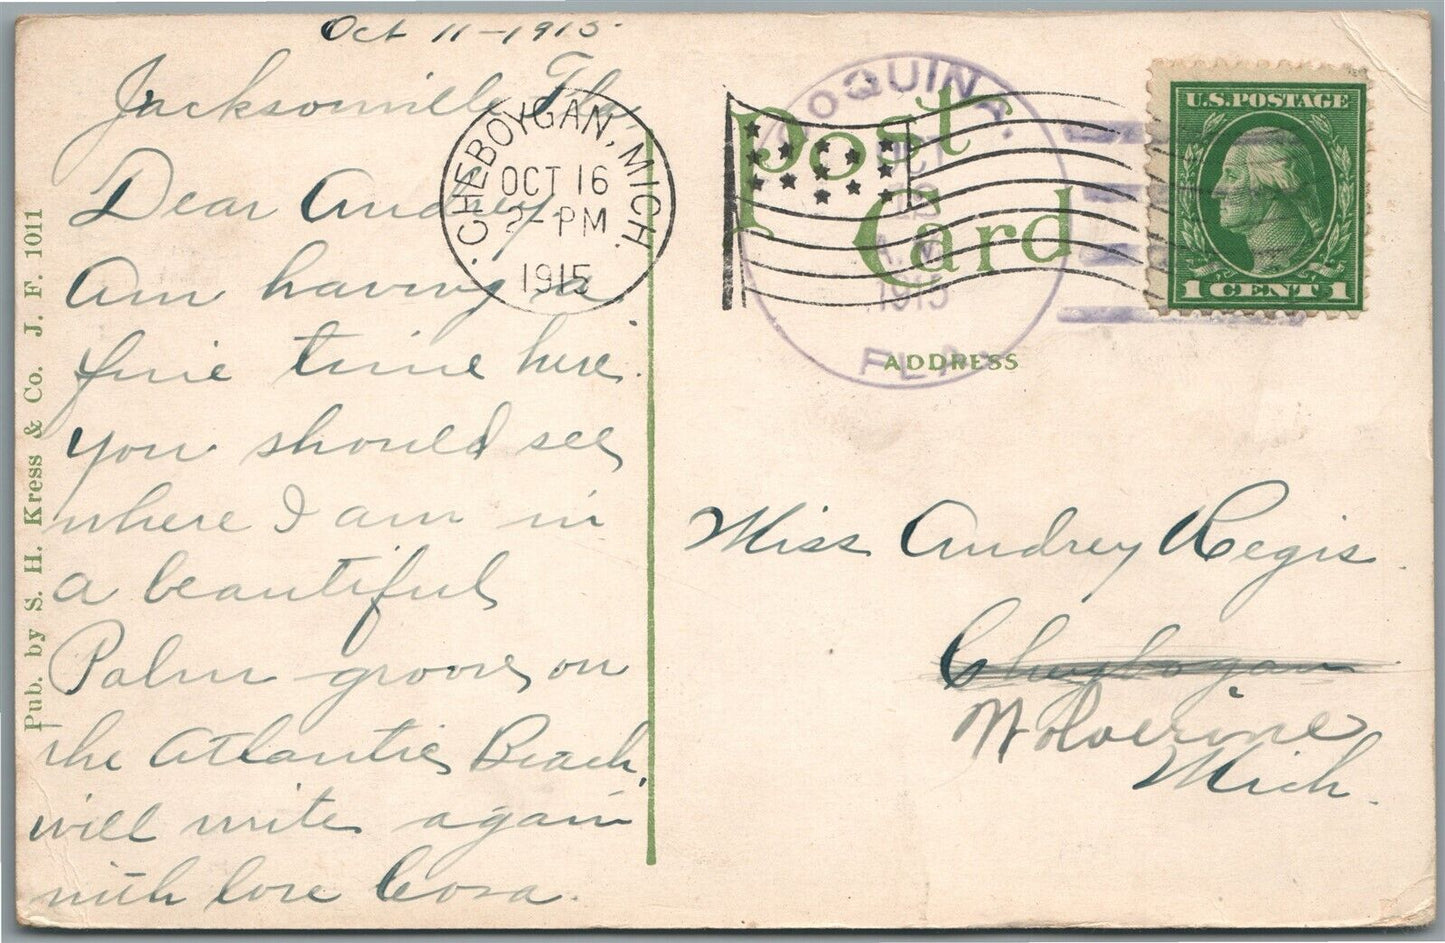 Oct 11-1915
Jacksonville Fla.
Dear Audrey
Am having a
fine time here.
you should see
where I am in
a beautiful
Palm grove on
the Atlantic Beach,
will write again
with love Cora.
Pub. by S. H. Kress & Co. J. F. 1011
CHEBOYGAN, MICH.
OCT 16
2-PM
1915
COQUINA.
OCT
12
A.M.
1915
FLA.
Post
Card
ADDRESS
U.S. POSTAGE
1 CENT 1
Miss Audrey Regis.
Cheybogan
Wolverine
Mich.